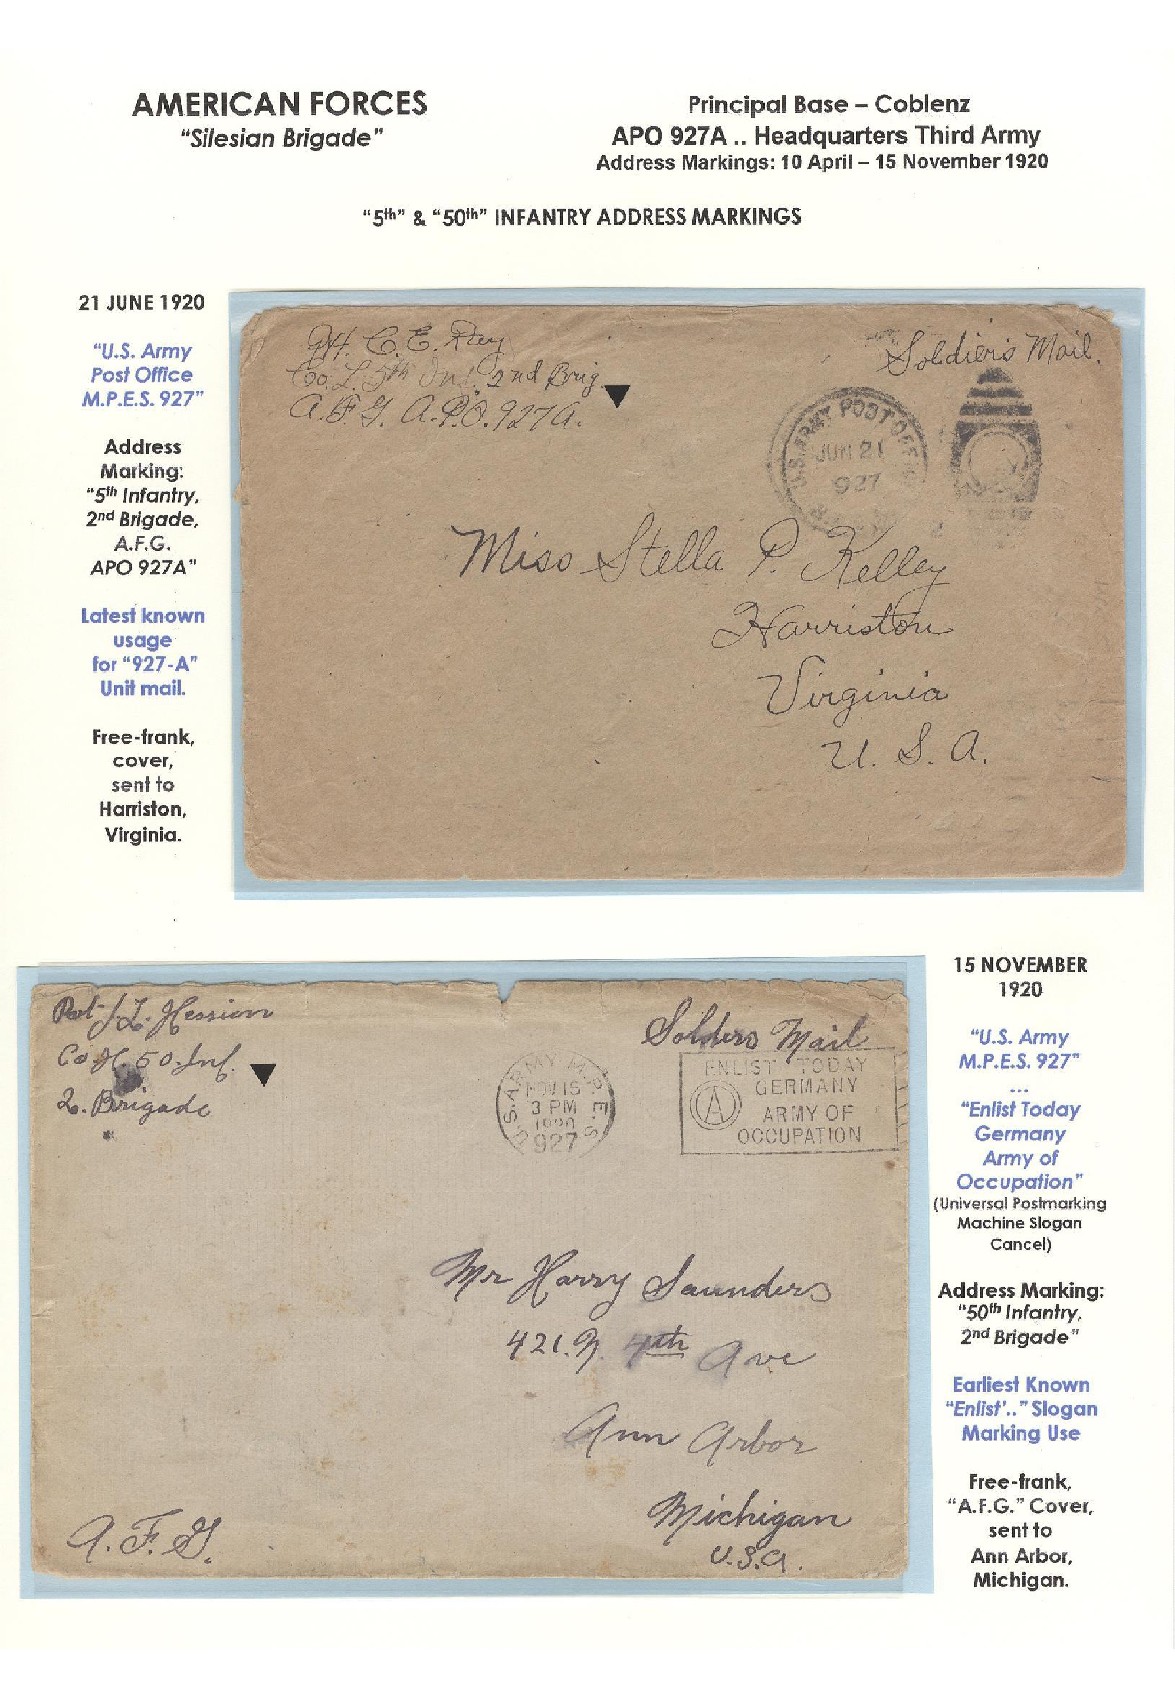 AMERICAN FORCES
"Silesian Brigade"
Principal Base – Coblenz
APO 927A .. Headquarters Third Army
Address Markings: 10 April – 15 November 1920
"5th" & "50th" INFANTRY ADDRESS MARKINGS
21 JUNE 1920
"U.S. Army
Post Office
M.P.E.S. 927"
Address
Marking:
"5th Infantry,
2nd Brigade,
A.F.G.
APO 927A"
Latest known
usage
for "927-A"
Unit mail.
Free-frank,
cover,
sent to
Harriston,
Virginia.
C. E.
Co. L. 5th Inf. 2nd Brig.
A.F.G. A.P.O. 927A.
Soldier's Mail.
U.S. ARMY POST OFFICE
JUN 21
927
Miss Stella P. Kelley
Harriston
Virginia
U. S. A.
Pvt J. L. Hession
Co H. 50. Inf.
2. Brigade
Solders Mail
U.S. ARMY M.P.E.S.
NOV 15
3 PM
1920
927
ENLIST TODAY
GERMANY
A
ARMY OF
OCCUPATION
Mr Harry Saunders
421. N. 4th Ave
Ann Arbor
Michigan
U.S.A.
A. F. G.
15 NOVEMBER
1920
"U.S. Army
M.P.E.S. 927"
...
"Enlist Today
Germany
Army of
Occupation"
(Universal Postmarking
Machine Slogan
Cancel)
Address Marking:
"50th Infantry,
2nd Brigade"
Earliest Known
"Enlist'.." Slogan
Marking Use
Free-frank,
"A.F.G." Cover,
sent to
Ann Arbor,
Michigan.